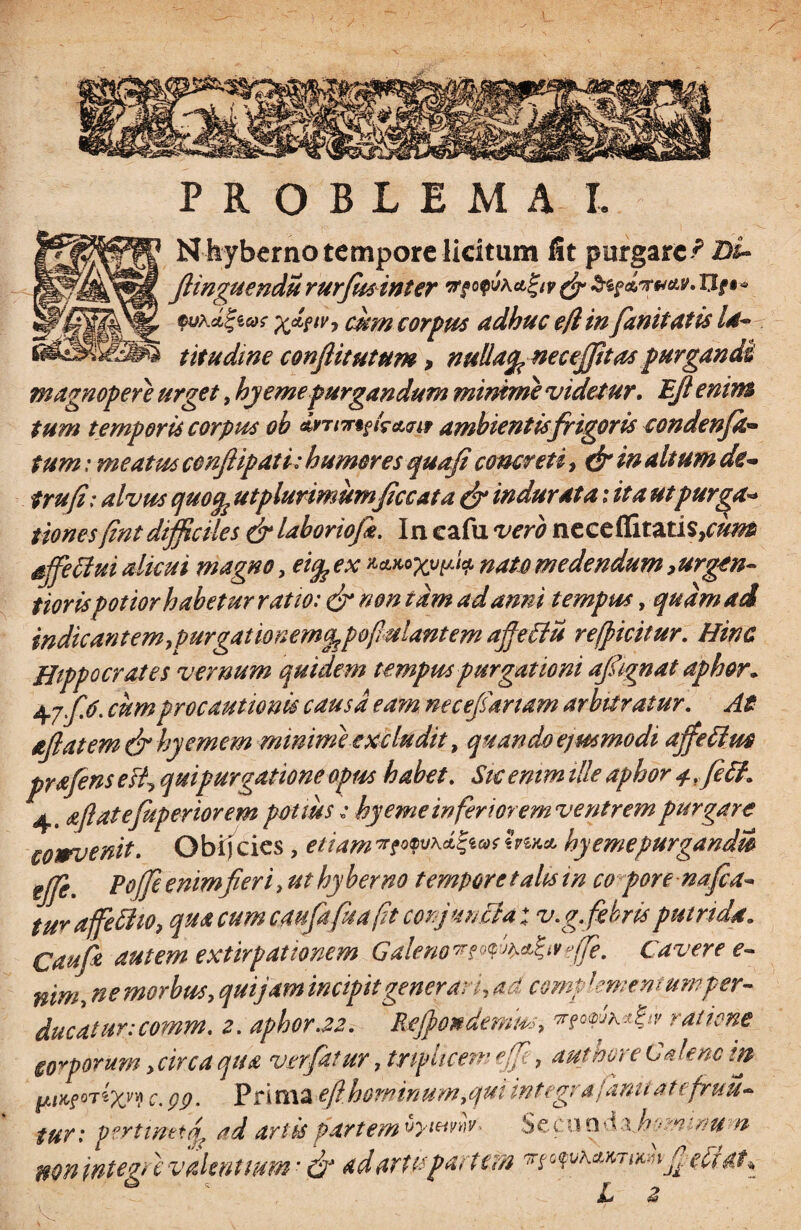 PROBLEMA I.
AN hyberno tempore licitum ſit purgare? Di-
ſtinguendũ rurſus inter προφύλαξιν & θεράπειαν. Προ-
φυλάξεως χάριν, cùm corpus adhuc eſt in ſanitatis la-
titudine conſtitutum, nullaq; neceſſitas purgandi
magnoperè urget, hyeme purgandum minimè videtur. Eſt enim
tum temporis corpus ob ἀντιπερίςασιν ambientis frigoris condenſa-
tum: meatus conſtipati: humores quaſi concreti, & in altum de-
truſi: alvus quoq; ut plurimùm ſiccata & indurata: ita ut purga-
tiones ſint difficiles & laborioſæ. In caſu verò neceſſitatis, cùm
affectui alicui magno, eiq; ex κακοχυμίᾳ nato medendum, urgen-
tioris potior habetur ratio: & non tàm ad anni tempus, quàm ad
indicantem, purgationemq; poſtulantem affectũ reſpicitur. Hinc
Hippocrates vernum quidem tempus purgationi aßignat aphor.
47. ſ. 6. cùm procautionis causâ eam neceſſariam arbitratur. At
æſtatem & hyemem minimè excludit, quando ejusmodi affectus
præſens eſt, qui purgatione opus habet. Sic enim ille aphor 4. ſect.
4. æſtate ſuperiorem potiùs: hyeme inferiorem ventrem purgare
convenit. Obijcies, etiam προφυλάξεως ἕνεκα hyeme purgandũ
eſſe. Poſſe enim fieri, ut hyberno tempore talis in corpore naſca-
tur affectio, quæ cum cauſa ſua ſit conjuncta: v. g. febris putrida.
Cauſæ autem extirpationem Galeno προφύλαξιν eſſe. Cavere e-
nim, ne morbus, qui jam incipit generari, ad complementum per-
ducatur: comm. 2. aphor. 22. Reſpondemus, προφύλαξιν ratione
corporum, circa quæ verſatur, triplicem eſſe, authore Galeno in
μικροτέχνῃ c. 99. Prima eſt hominum, qui integra ſanitate fruũ-
tur: pertinetq; ad artis partem ὑγιεινὴν. Secunda hominum
non integrè valentium: & ad artis partem προφυλακτικὴν ſpectat.
L 2